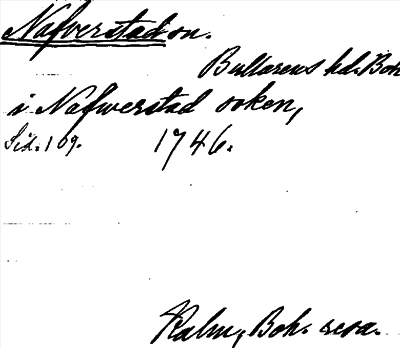 Nafverstad sn.
Bullarens hd. Boh
i Nafwerstad soken,
Sid. 109. 1746.
Kalm, Boh. resa.